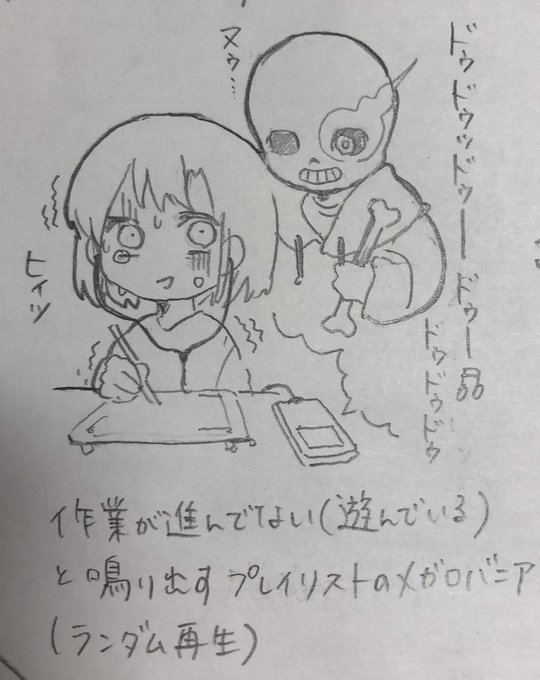 ドゥドゥッドゥー ドゥー品
ドゥドゥドゥ
ヌゥ…
ヒィッ
作業が進んでない(遊んでいる)
と鳴り出すプレイリストのメガロバニア
(ランダム再生)